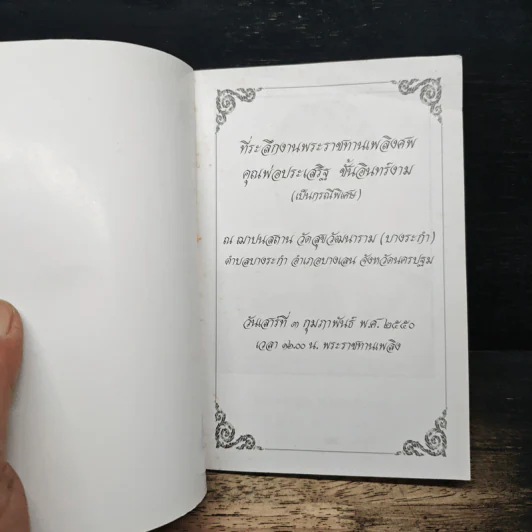 ที่ระลึกงานพระราชทานเพลิงศพ
คุณพ่อประเสริฐ ชั้นอินทร์งาม
(เป็นกรณีพิเศษ)
ณ ฌาปนสถาน วัดสุขวัฒนาราม (บางระกำ)
ตำบลบางระกำ อำเภอบางเลน จังหวัดนครปฐม
วันเสาร์ที่ ๓ กุมภาพันธ์ พ.ศ. ๒๕๕๐
เวลา ๑๒.๐๐ น. พระราชทานเพลิง